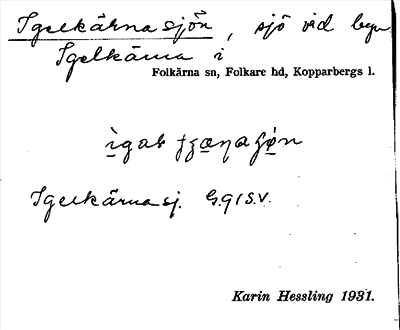 Igelkärnasjön, sjö vid byn
Igelkärna i
Folkärna sn, Folkare hd, Kopparbergs l.
Igelkärnasj. G.91S.V.
Karin Hessling 1931.